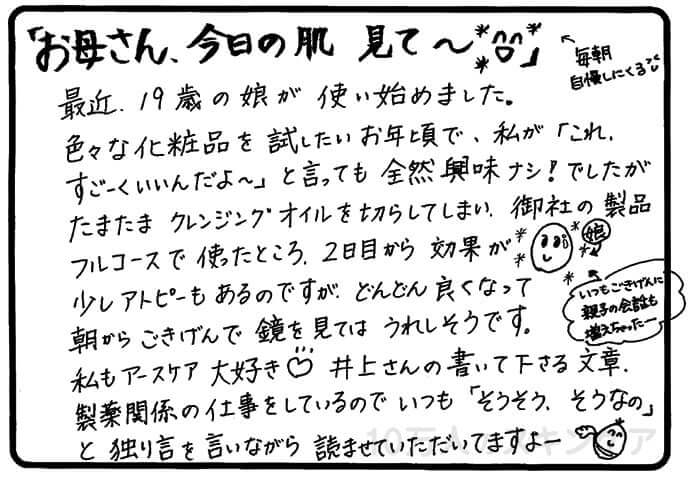 「お母さん、今日の肌 見て〜」
毎朝
自慢しにくる
最近、19歳の娘が 使い始めました。
色々な化粧品を 試したいお年頃で、私が「これ、
すごーくいいんだよ〜」と言っても 全然興味ナシ!でしたが
たまたま クレンジングオイルを切らしてしまい、御社の製品
フルコースで 使ったところ、2日目から 効果が
娘
少しアトピーも あるのですが、どんどん 良くなって
朝から ごきげんで 鏡を見ては うれしそうです。
いつもごきげんに
親子の会話も
増えちゃったー
私もアースケア 大好き♡ 井上さんの書いて下さる文章、
製薬関係の仕事をしているので いつも「そうそう、そうなの」
と 独り言を言いながら 読ませていただいてますよー
10万人のスキンケア